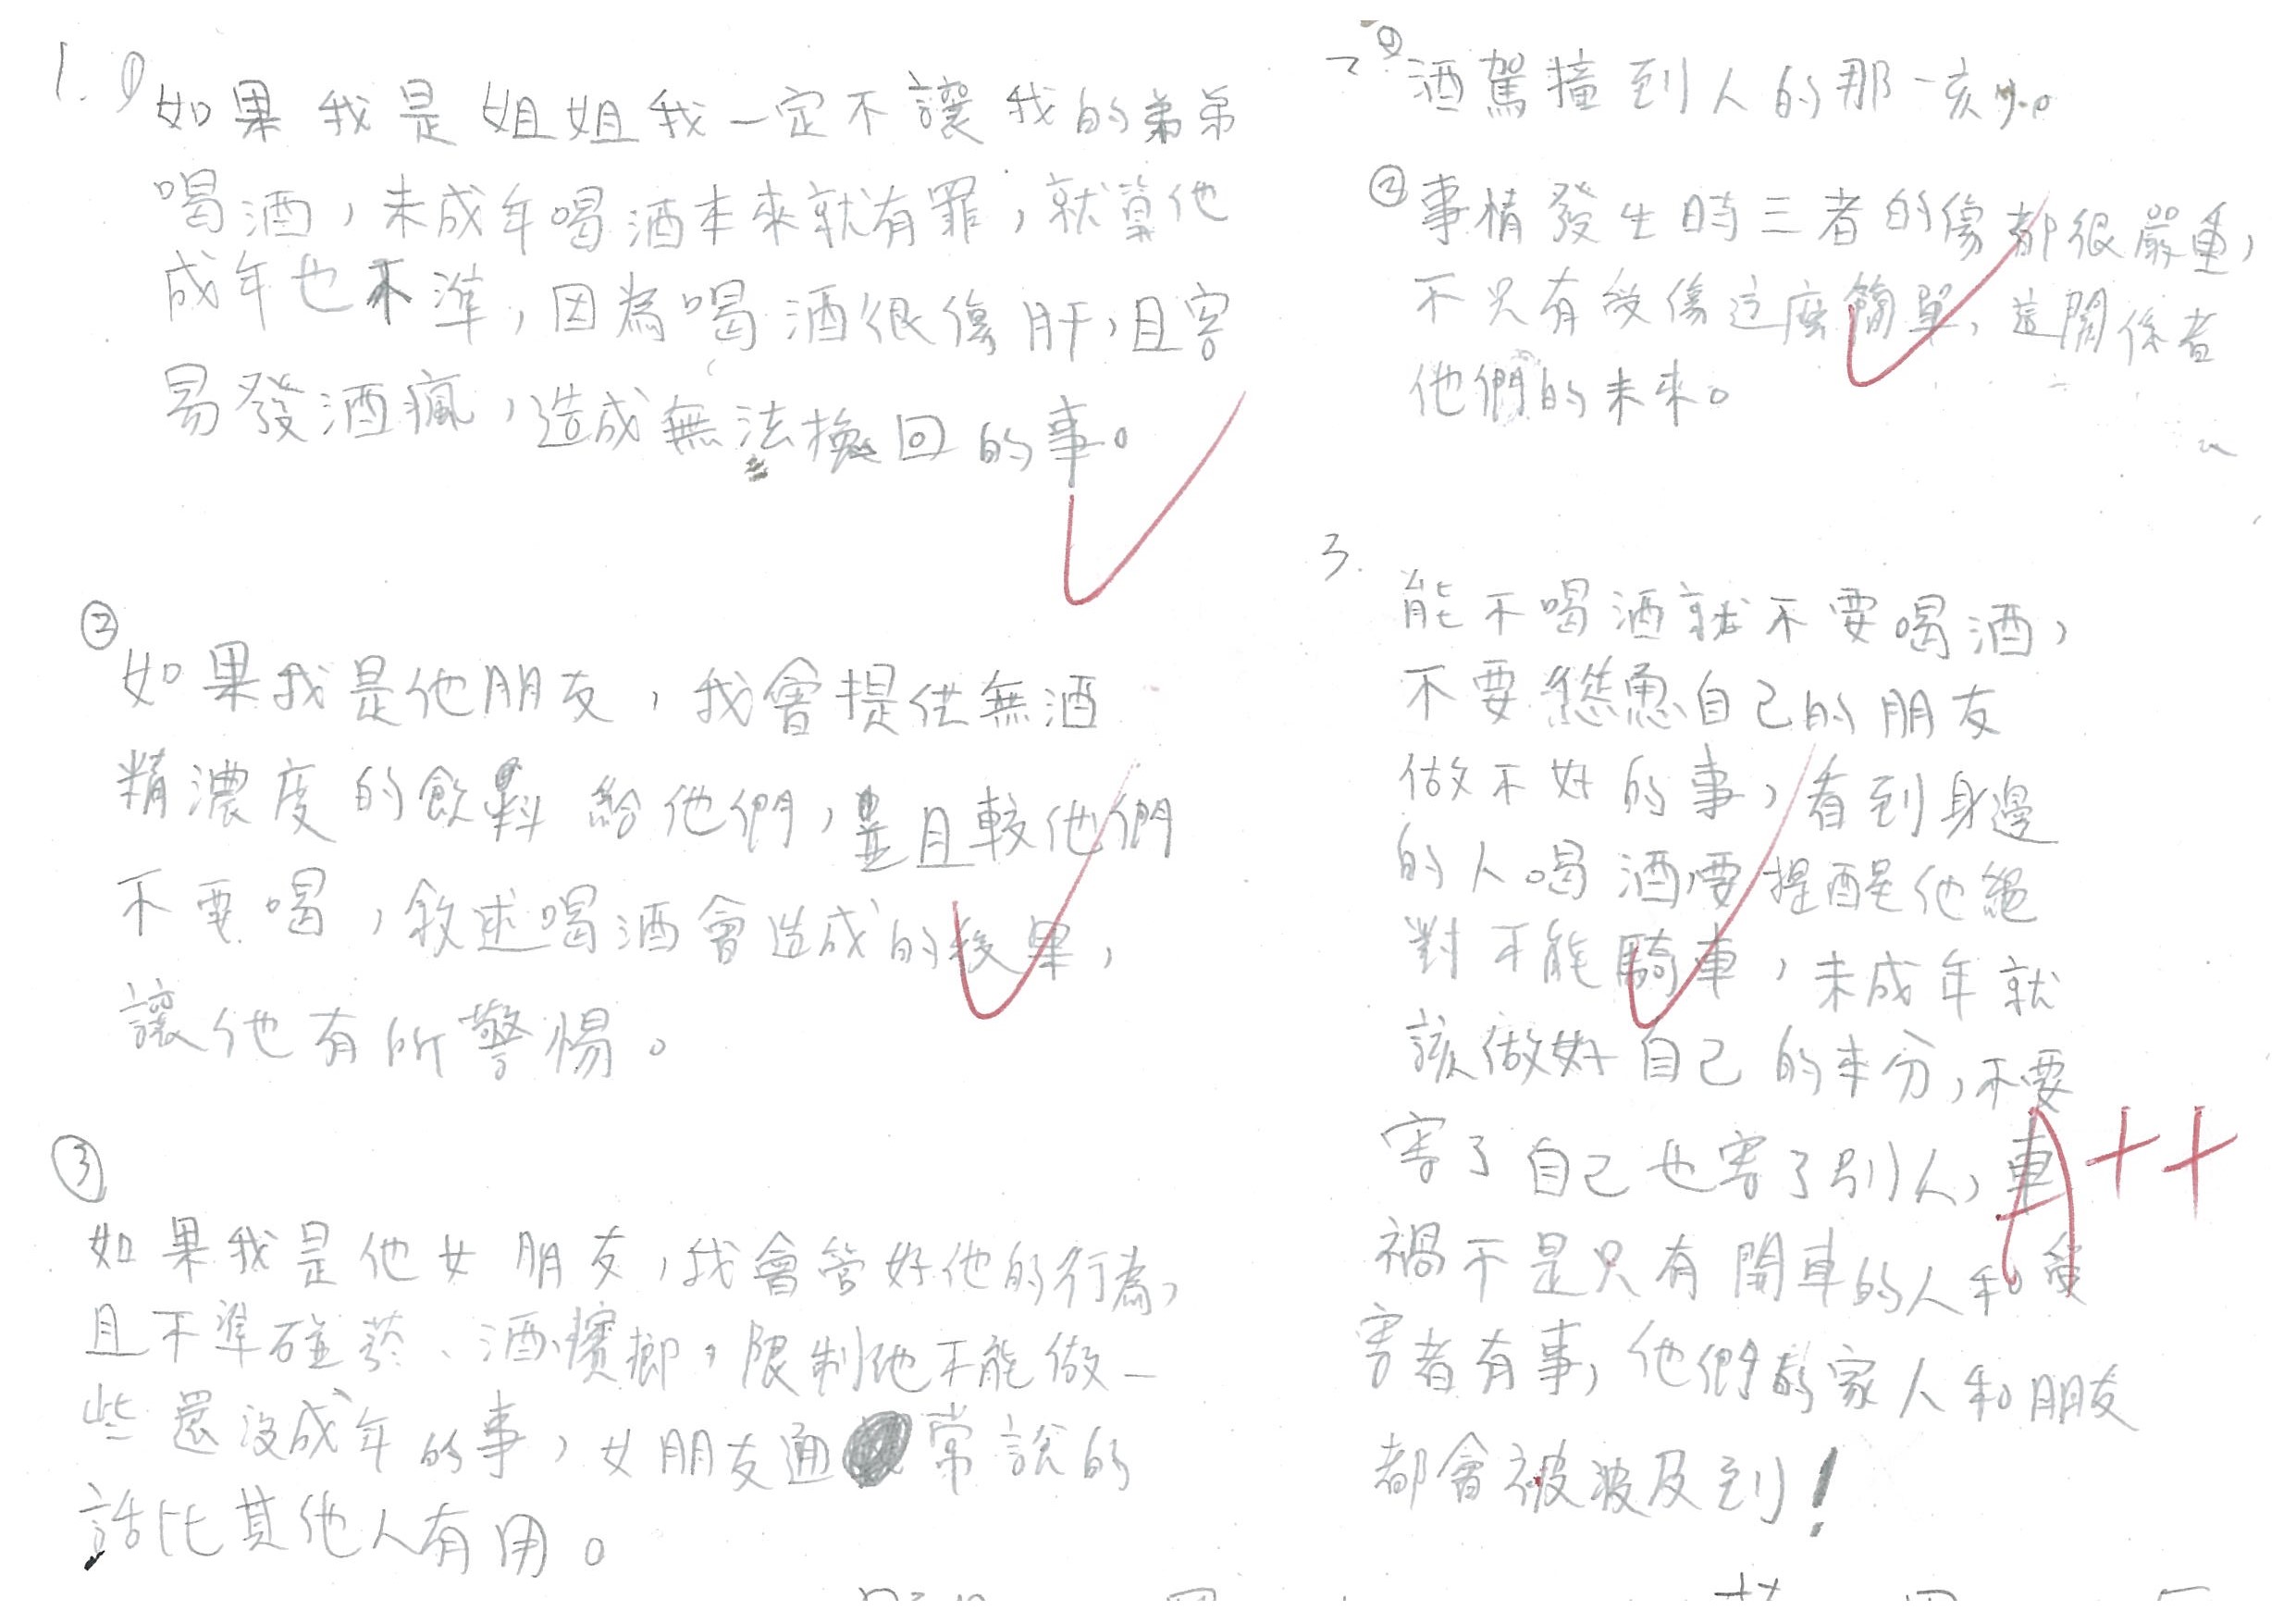 1. ①如果我是姐姐我一定不讓我的弟弟
喝酒，未成年喝酒本來就有罪，就算他
成年也不準，因為喝酒很傷肝，且容
易發酒瘋，造成無法換回的事。
②
如果我是他朋友，我會提供無酒
精濃度的飲料給他們，並且較他們
不要喝，敘述喝酒會造成的後果，
讓他有所警惕。
③
如果我是他女朋友，我會管好他的行為，
且不準碰菸、酒、檳榔，限制他不能做一
些還沒成年的事，女朋友通常說的
話比其他人有用。
2. ①酒駕撞到人的那一刻。
②事情發生時三者的傷都很嚴重，
不只有受傷這麼簡單，這關係者
他們的未來。
3.
能不喝酒就不要喝酒，
不要慫恿自己的朋友
做不好的事，看到身邊
的人喝酒要提醒他絕
對不能騎車，未成年就
該做好自己的本分，不要
害了自己也害了別人，車
禍不是只有開車的人和受
害者有事，他們的家人和朋友
都會被波及到！
A++